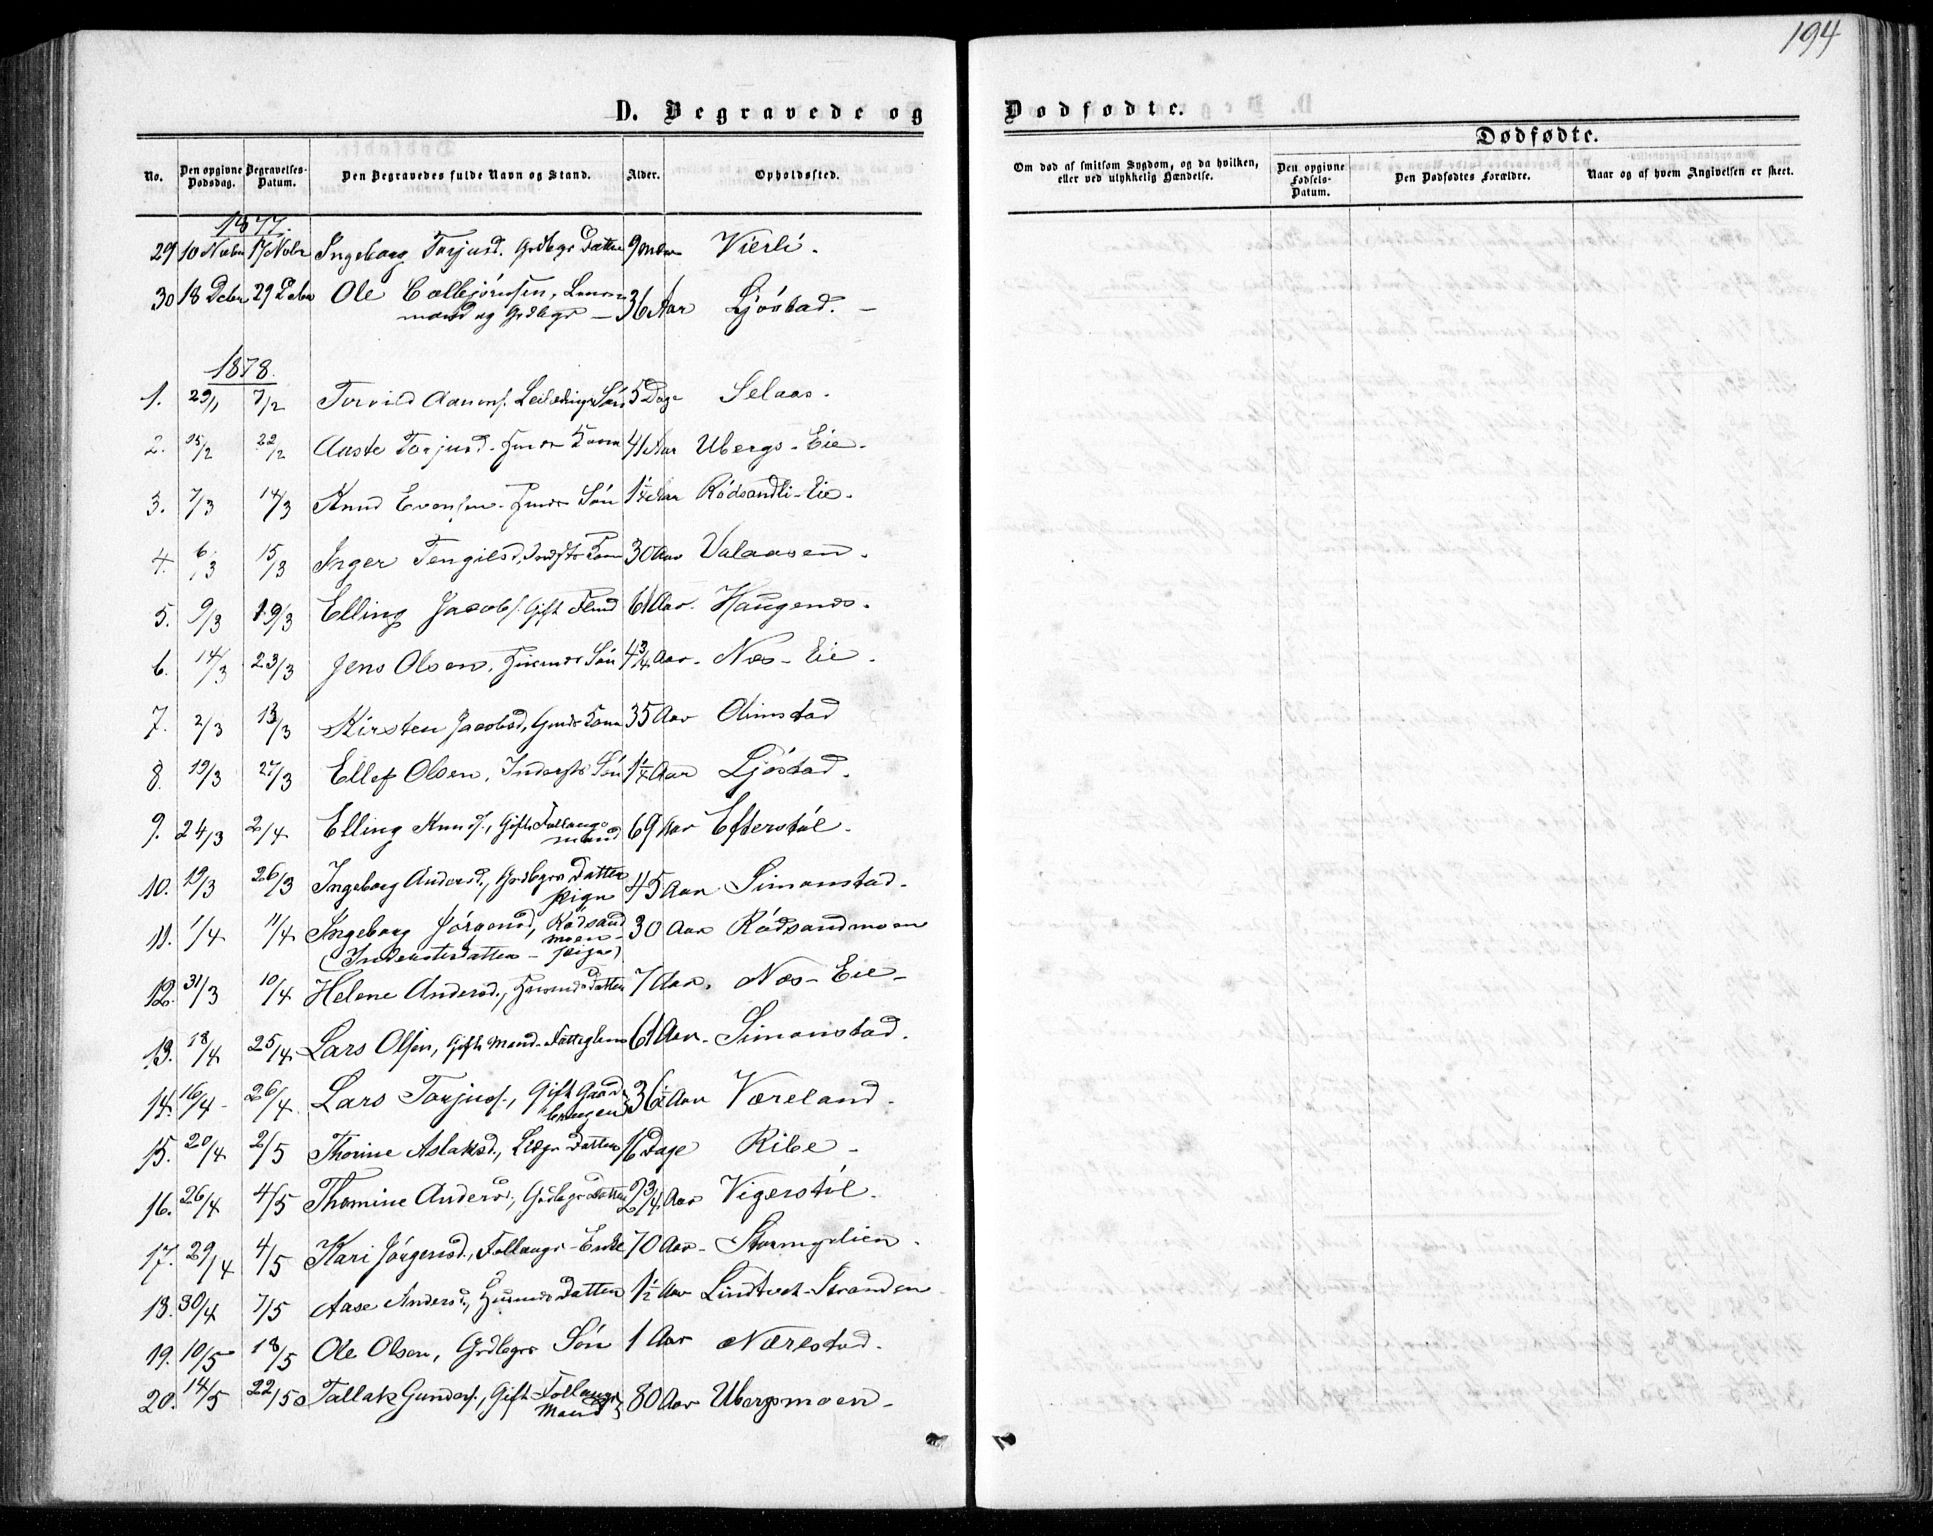 194
D. Begravede og Dødfødte.
Dødfødte.
No. Den opgivne Dødsdag. Begravelses-Datum. Den Begravedes fulde Navn og Stand. Alder. Opholdssted. Om død af smitsom Sygdom, og da hvilken, eller ved ulykkelig Hændelse. Den opgivne Fødsels-Datum. Den Dødfødtes Forældre. Naar og af hvem Angivelsen er skeet.
1877.
29 10 Novbr 17 Novbr Ingeborg Torjusd. Grdbgr Datter 9 Vierli.
30 18 Decbr 29 Decbr Ole mand og Grdbgr 36 Aar Ljöstad.
1878.
1. 29/1 7/2 Aanons. Sön 5 Dage Selaas.
2. 15/2 22/2 Aaste Torjusd. Kone 41 Aar Ubergs-Eie.
3. 7/3 14/3 Knud Evensen. Sön 1 1/4 Aar Rödsandli-Eie.
4. 6/3 15/3 Inger Tengilsd. Kone 30 Aar Valaasen.
5. 9/3 19/3 Elling Jacobs. Gift 61 Aar. Haugenes.
6. 14/3 23/3 Jens Olsen, Husmds Sön 4 3/4 Aar. Næs-Eie.
7. 2/3 13/3 Kirsten Jacobsd, Kone 35 Aar Olimstad
8. 19/3 27/3 Ellef Olsen, Indersts Sön 1 1/4 Aar Ljöstad.
9. 24/3 2/4 Elling Knuds., Gift Follaugs mand 69 Aar Efterstöl.
10. 19/3 26/3 Ingeborg Andersd., Grdbgrs Datter Pige 45 Aar Simonstad.
11. 1/4 11/4 Ingeborg Jörgensd, Rödsand moen 30 Aar Rödsandmoen
(Inderstsdatter - pige)
12. 31/3 10/4 Helene Andersd., Husmds Datter 7 Aar. Næs-Eie
13. 18/4 25/4 Lars Olsen, Gift Mand Fattiglem 61 Aar. Simonstad.
14. 16/4 26/4 Lars Torjus., Gift Gaard bruger 36 1/2 Aar Væreland.
15. 20/4 2/5 Thorine Aslaksd., Datter 16 Dage Ribe
16. 26/4 4/5 Thomine Andersd., Grdbgrs Datter 2 3/4 Aar Vigerstöl.
17. 29/4 4/5 Kari Jörgensd., Follaugs-Enke 70 Aar
18. 30/4 7/5 Aase Andersd., Husmds Datter 1 1/2 Aar Lindtveit-Stranden
19. 10/5 18/5 Ole Olsen, Grdbgrs Sön 1 Aar Nærestad.
20. 14/5 22/5 Tallak Gunders., Gift Follaugs Mand 80 Aar Ubergsmoen.